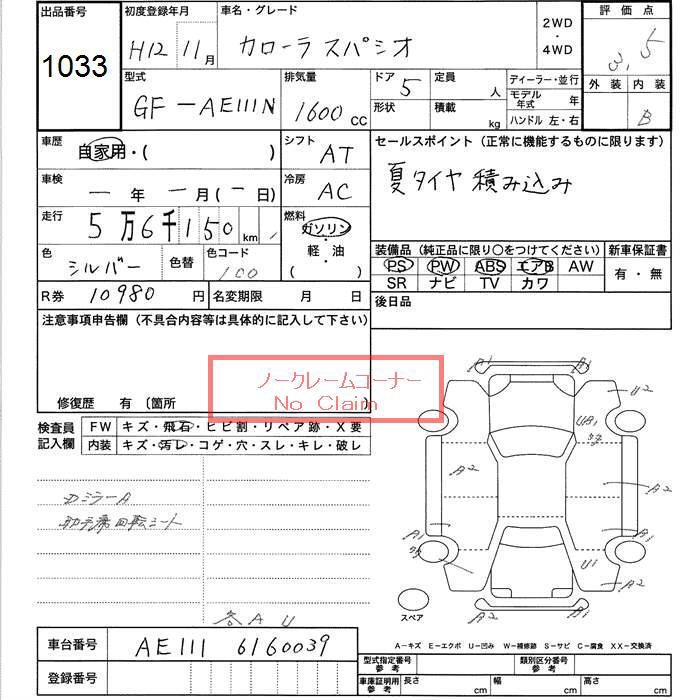 出品番号 初度登録年月 車名・グレード 2WD・4WD 評価点
1033 H12 11月 カローラスパシオ 3.5
型式 排気量 ドア 定員 ディーラー・並行 外装 内装
GF-AE111N 1600 CC 5 人 モデル年式 年 B
形状 積載 kg ハンドル 左・右
車歴 自家用・( ) シフト AT セールスポイント(正常に機能するものに限ります)
車検 ー年ー月(ー日) 冷房 AC 夏タイヤ積み込み
走行 5万6千150km 燃料 ガソリン・軽・油 ( )
色 シルバー 色替 色コード 100 装備品(純正品に限り○をつけてください) 新車保証書
PS PW ABS エアB AW 有・無
SR ナビ TV カワ
R券 10980円 名変期限 月 日 後日品
注意事項申告欄(不具合内容等は具体的に記入して下さい)
ノークレームコーナー
No Claim
修復歴 有 〔箇所
検査員記入欄 FW キズ・飛石・ヒビ割・リペア跡・X要
内装 キズ・汚レ・コゲ・穴・スレ・キレ・破レ
A1 A1
U2
UB1
A2 A2 A2
ミラーA
助手席回転シート
A1 A1
U1
A2 A2
スペア
各AU
A-キズ E-エクボ U-凹み W-補修跡 S-サビ C-腐食 XX-交換済
車台番号 AE111 6160039
型式指定番号 参考 類別区分番号 参考
登録番号 車庫証明用 参考 長さ cm 幅 cm 高さ cm